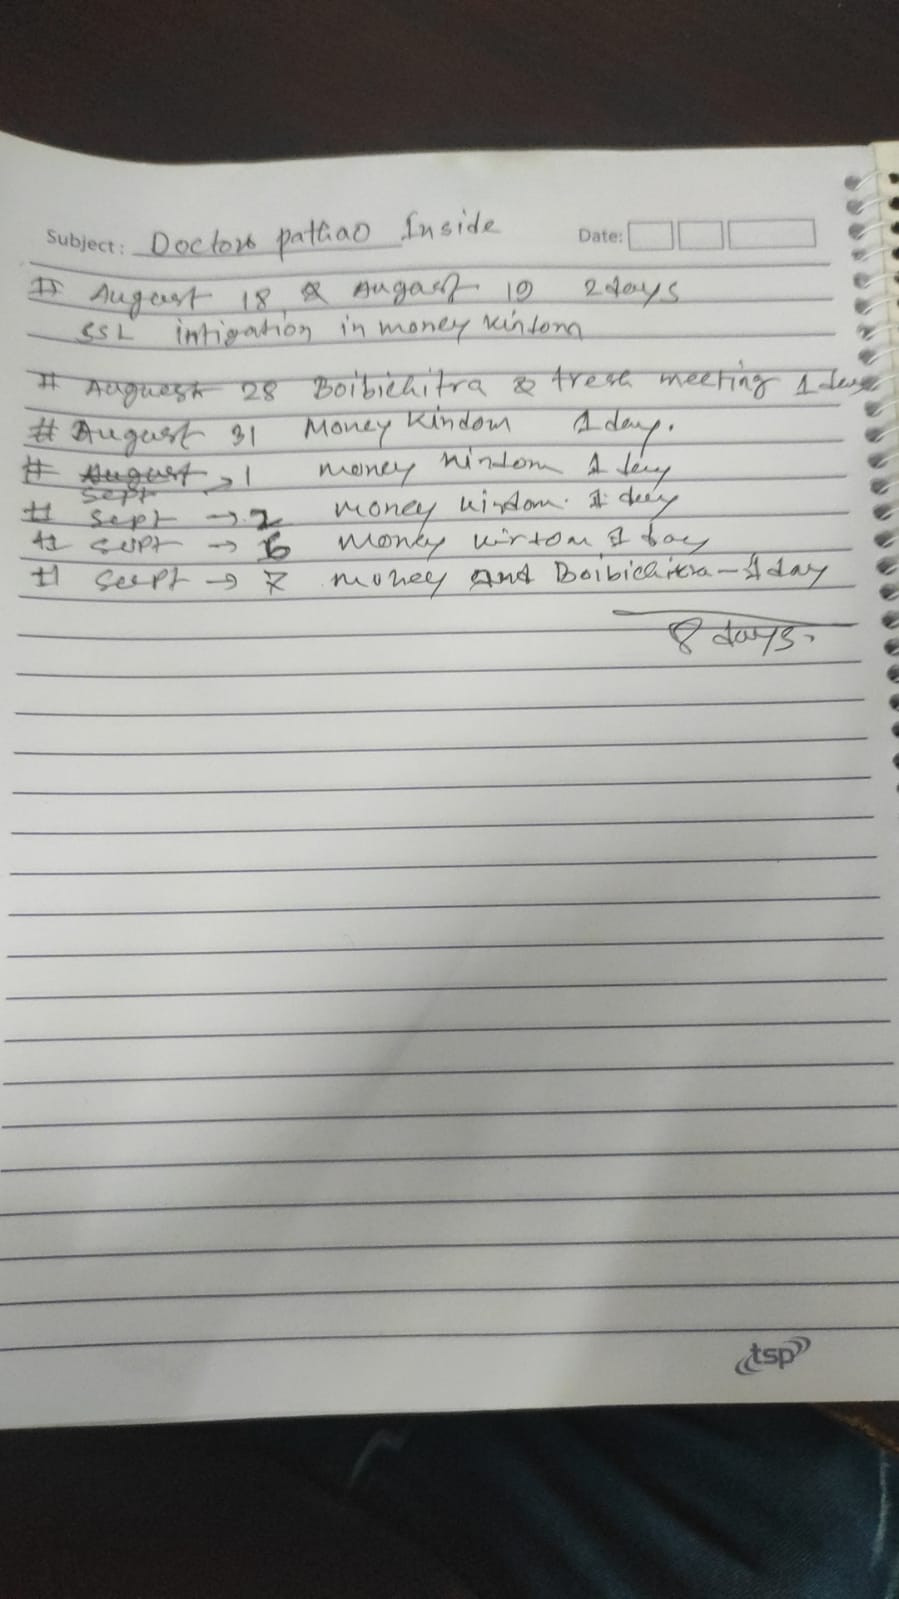 Subject: Doctors pathao Inside Date:
# August 18 & August 19 2 days
SSL intigration in money kindom
# Auguest 28 Boibichitra & fresh meeting 1 day
# August 31 Money Kindom 1 day.
# August → 1 money kindom 1 day
Sept
# Sept → 2 money kindom 1 day
# Sept → 6 Money kindom 1 day
# Sept → 7 money and Boibichitra - 1 day
8 days.
tsp